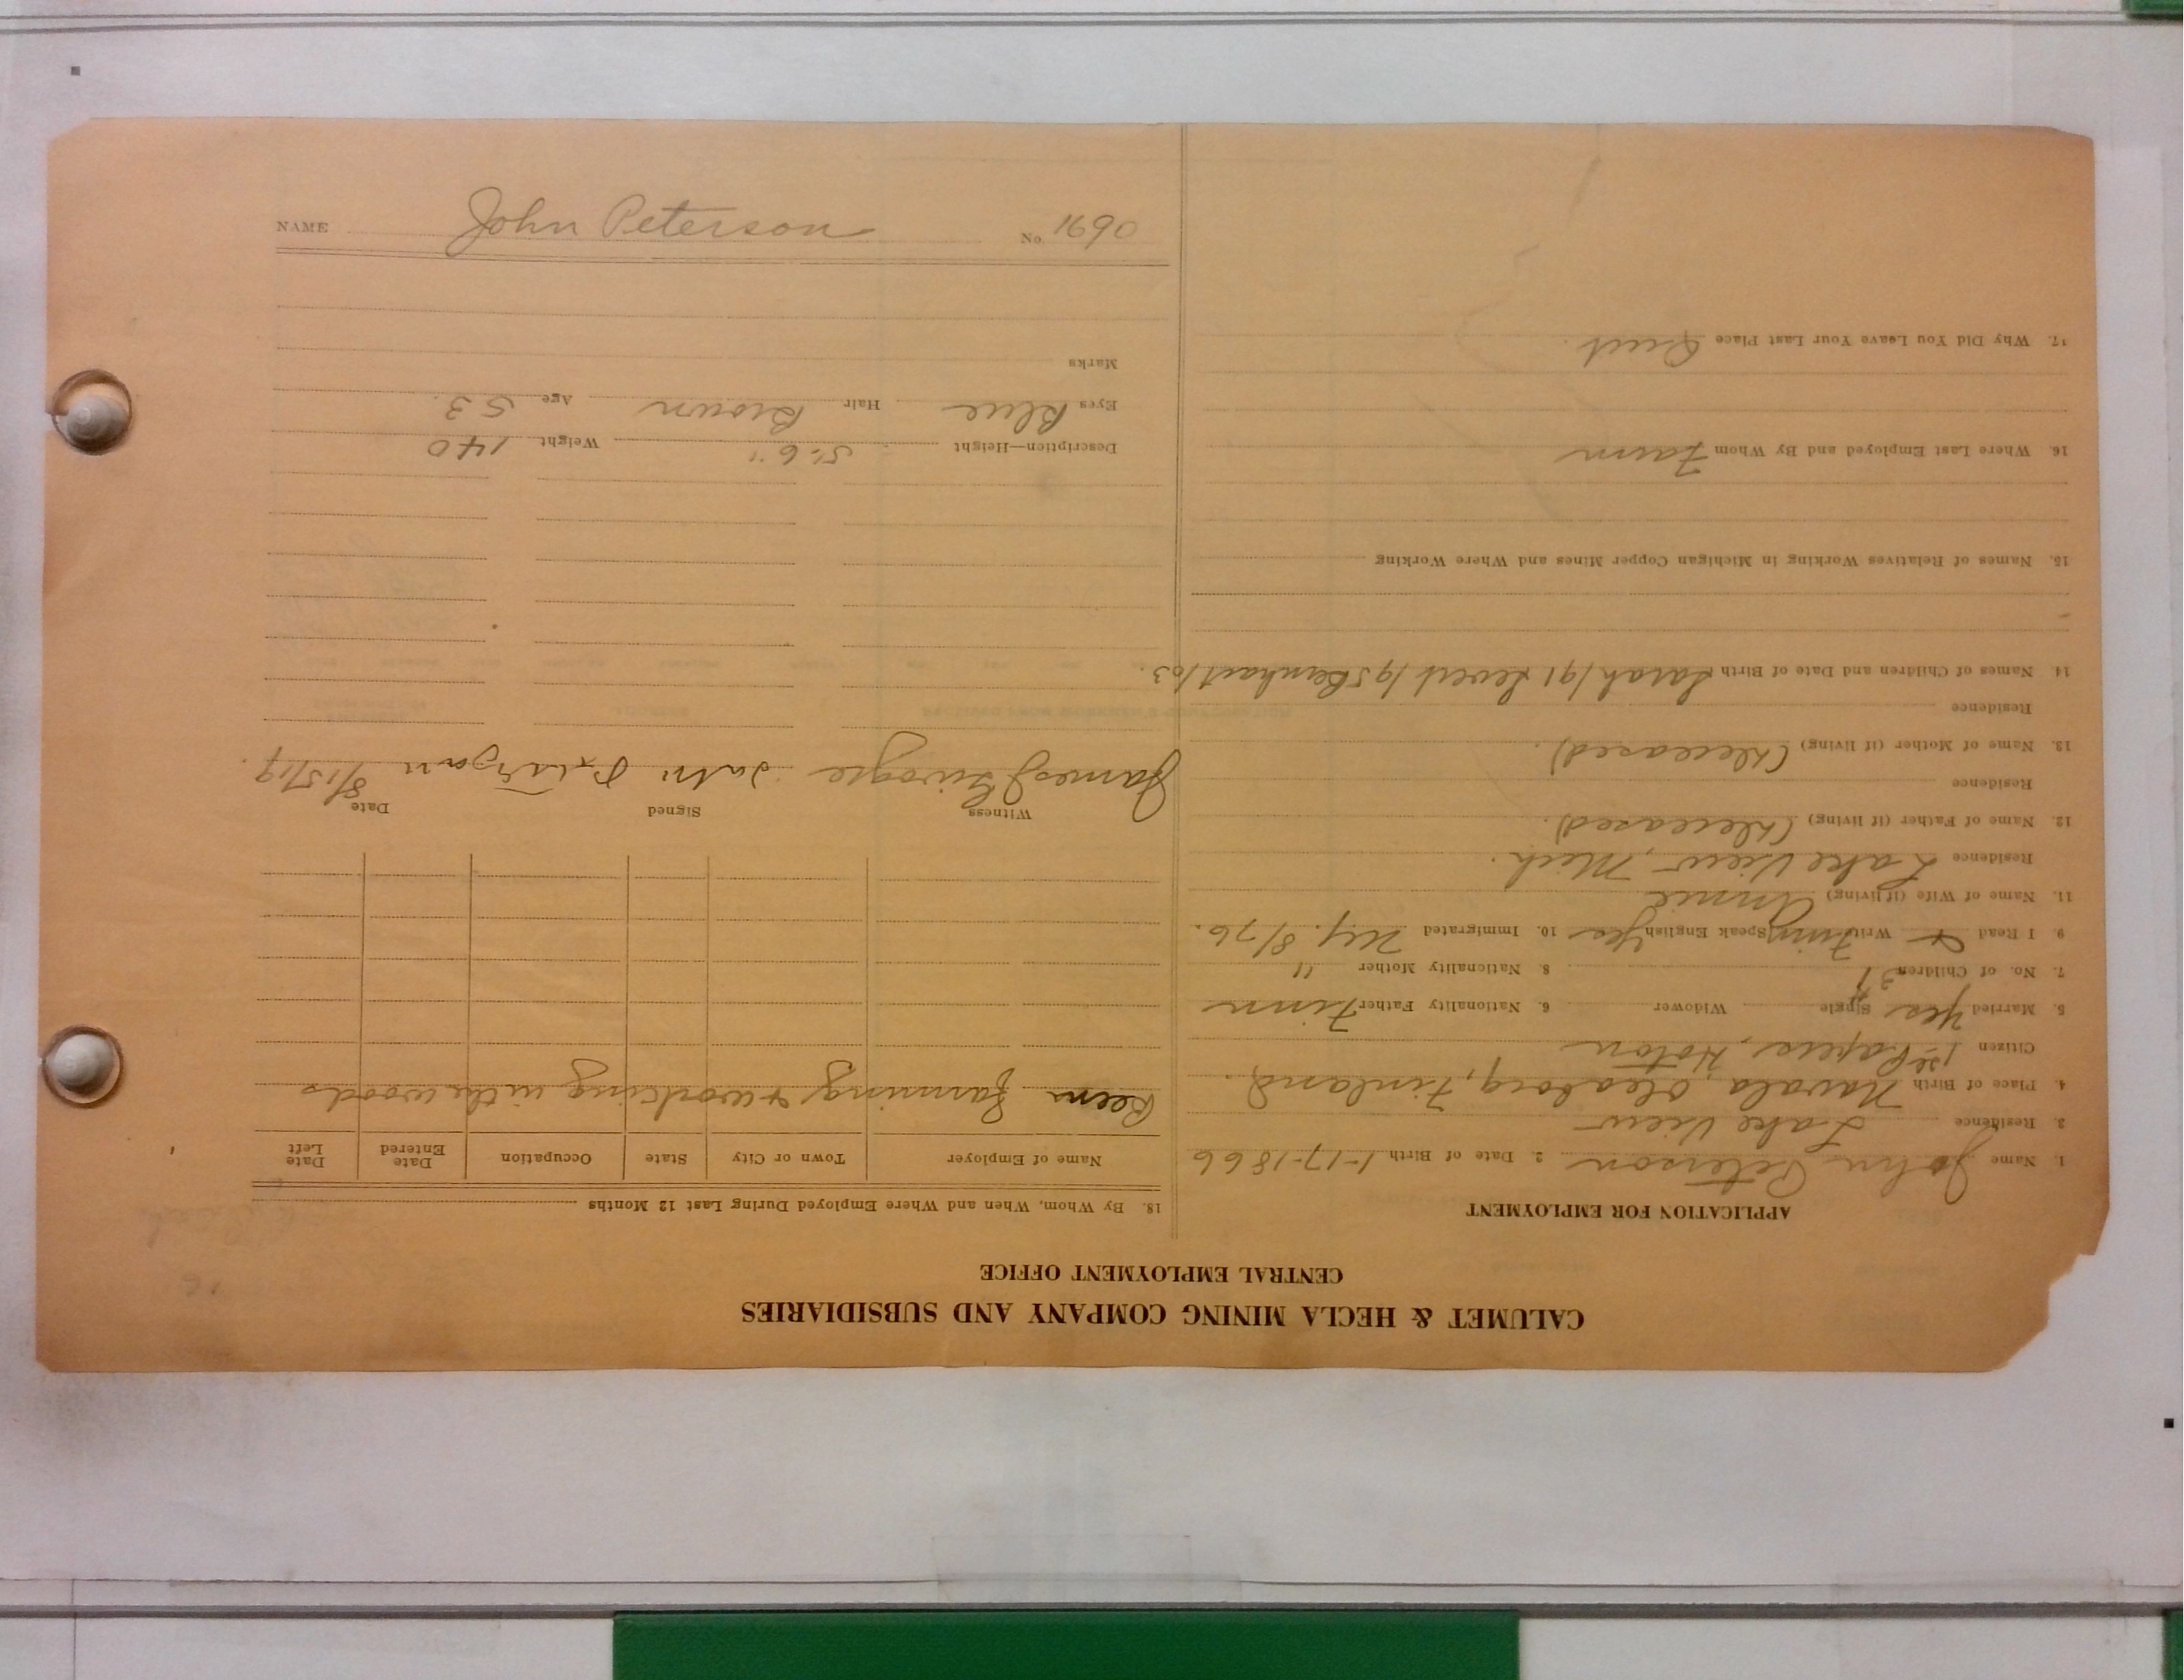 CALUMET & HECLA MINING COMPANY AND SUBSIDIARIES
CENTRAL EMPLOYMENT OFFICE
APPLICATION FOR EMPLOYMENT
1. Name John Peterson 2. Date of Birth 1-17-1866
3. Residence Lake View
4. Place of Birth Oleaborg, Finland.
Citizen 1st Papers, Hoton
5. Married Yes Single Widower 6. Nationality Father Finn
7. No. of Children 3 8. Nationality Mother "
9. I Read & Write Finn Speak English Yes 10. Immigrated
11. Name of Wife (if living) Annie
Residence Lake View, Mich.
12. Name of Father (if living) (Deceased).
Residence
13. Name of Mother (if living) (Deceased).
Residence
14 Names of Children and Date of Birth Sarah/91 /95 Bernhart/03.
15. Names of Relatives Working in Michigan Copper Mines and Where Working
16. Where Last Employed and By Whom Farm
17. Why Did You Leave Your Last Place Quit.
18. By Whom, When and Where Employed During Last 12 Months
Name of Employer Town or City State Occupation Date Entered Date Left
Been farming & working in the woods
Witness Signed Date
James 8/15/19.
Description—Height 5' 6" Weight 140
Eyes Blue Hair Brown Age 53.
Marks
NAME John Peterson No. 11690